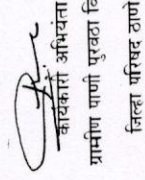 कार्यकारी अभियंता
ग्रामीण पाणी पुरवठा वि
जिल्हा परिषद ठाणे